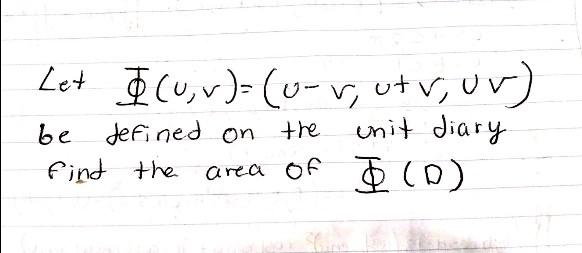 Let Φ(u,v)=(u-v, u+v, uv)
be defined on the unit diary
find the area of Φ(D)